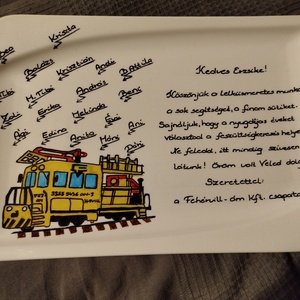 Kriszta
Balázs
Krisztián
Andi
D.Attila
Tibi
M.Tibi
András
Beni
Zsolti
Erika
Melinda
Ági
Edina
Anita
Ági
Móni
Ani
Dóri
Kedves Erzsike!
Köszönjük a lelkiismeretes munkát
a sok segítséget, a finom sütiket.
Sajnáljuk, hogy a nyugdíjas éveket
választod a feszültségkeresés helyett
Ne feledd, itt mindig szívesen
látunk! Öröm volt Veled dolgozni
Szeretettel:
a Fehérvill-ám Kft. csapata